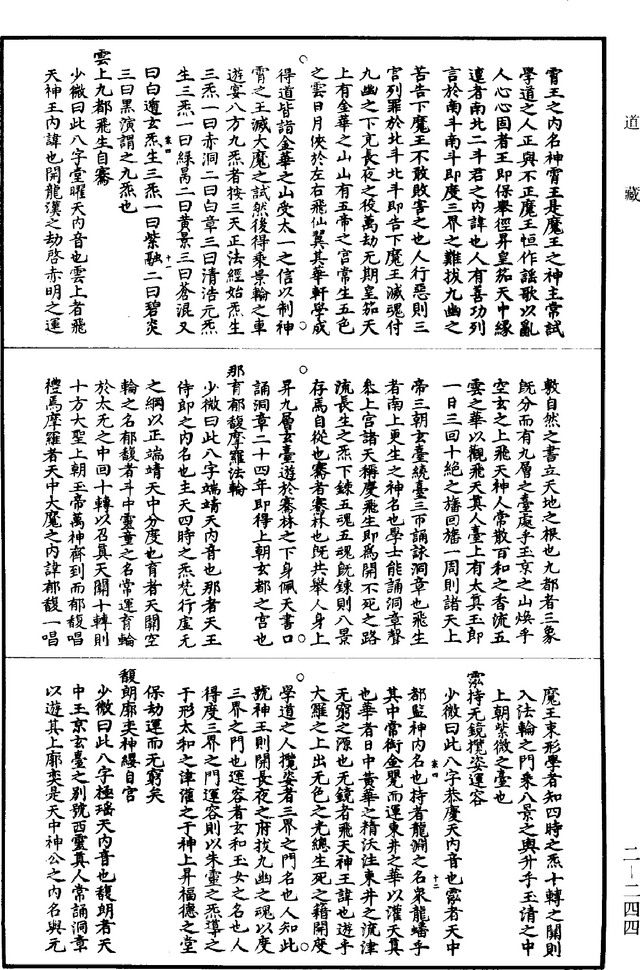 霄王之内名神霄王是魔王之神主常試
學道之人正與不正魔王恒作謡歌以亂
人心心固者王即保舉徑昇皇笳天中緣
逮者南北二斗君之内諱也人有善功列
言於南斗南斗即度三界之難拔九幽之
苦告下魔王不敢敗害之也人行惡則三
宫列罪於北斗北斗即告下魔王滅魂付
九幽之下充長夜之役萬劫无期皇笳天
上有金華之山山有五帝之宫常生五色
之雲日月俠於左右飛仙翼其華軒學成
得道皆詣金華之山受太一之信以制神
霄之王滅大魔之試然後得乘景輪之車
遊宴八方九炁者按三天正法經始炁生
三炁一曰赤洞二曰白章三曰清浩元炁
生三炁一曰緑昺二曰黄景三曰蒼混又
曰白遁玄炁生三炁一曰紫融二曰碧炎
三曰黑演謂之九炁也
雲上九都飛生自騫
少微曰此八字堂曜天内音也雲上者飛
天神王内諱也開龍漢之劫啓赤明之運
敷自然之書立天地之根也九都者三象
既分而有九層之臺處乎玉京之山焕乎
空玄之上飛天神人常散百和之香流五
雲之華以觀飛天真人臺上有太真玉郎
一日三回十絶之旛回旛一周則諸天上
帝三朝玄臺繞臺三帀誦詠洞章也飛生
者南上更生之神名也學士能誦洞章聲
參上宫諸天稱慶飛生即爲開不死之路
流長生之炁下鍊五魂五魂既鍊則八景
存焉自從也騫者騫林也既共舉人身上
昇九層玄臺遊於騫林之下身佩天書口
誦洞章二十四年即得上朝玄都之宫也
那育郁馥摩羅法輪
少微曰此八字端靖天内音也那者天王
侍郎之内名也主天四時之炁梵行虚无
之綱以正端靖天中分度也育者天關空
輪之名郁馥者斗中靈童之名常運育輪
於太无之中回十轉以召真天關十轉則
十方大聖上朝玉帝萬神齊到而郁馥唱
禮焉摩羅者天中大魔之内諱郁馥一唱
魔王束形學者知四時之炁十轉之關則
入法輪之門乘八景之輿升乎玉清之中
上朝紫微之臺也
霐持无鏡攬姿運容
少微曰此八字恭慶天内音也霐者天中
都監神内名也持者龍淵之名衆龍蟠乎
其中常銜金甖而運東井之華以灌天真
也華者日中黄華之精沃注東井之流津
无窮之源也无鏡者飛天神王諱也遊乎
大羅之上出无色之光總生死之籍開度
學道之人攬姿者三界之門名也人知此
號神王則開長夜之府拔九幽之魂以度
三界之門也運容者玄和玉女之名也人
得度三界之門運容則以朱靈之炁導之
于形太和之津灌之于神上昇福德之堂
保劫運而无窮矣
馥朗廓奕神纓自宫
少微曰此八字極瑶天内音也馥朗者天
中玉京玄臺之别號西靈真人常誦洞章
以遊其上廓奕是天中神公之内名與元
道藏
二－二四四